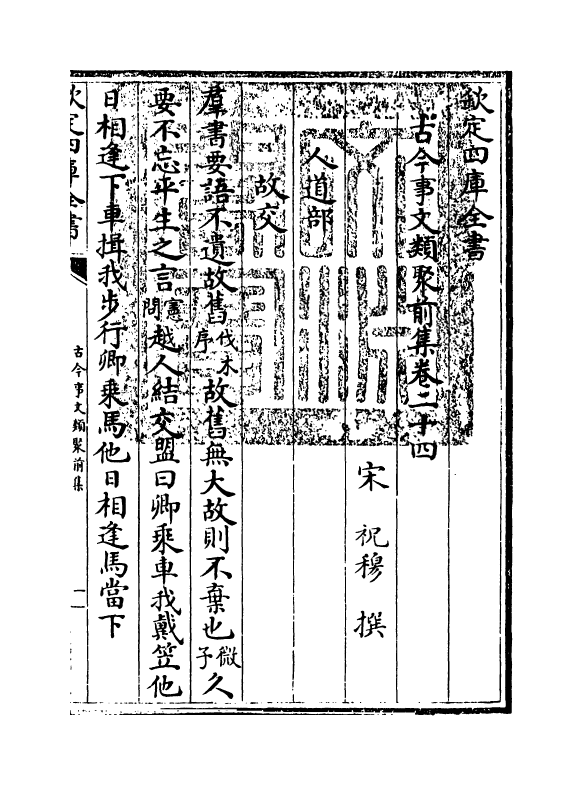 欽定四庫全書
古今事文類聚前集卷二十四
宋 祝穆 撰
人道部
故交
羣書要語不遺故舊伐木序故舊無大故則不棄也微子久
要不忘平生之言憲問越人結交盟曰卿乘車我戴笠他
日相逢下車揖我步行卿乘馬他日相逢馬當下
欽定四庫全書
古今事文類聚前集
一